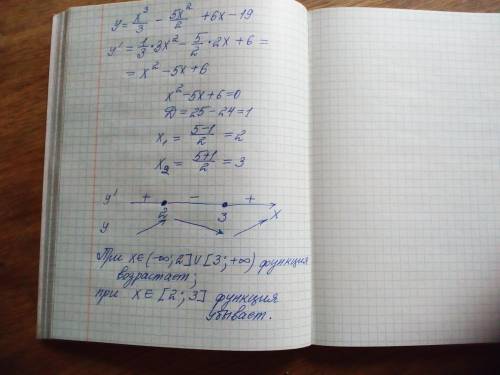 y = x³/3 - 5x²/2 + 6x - 19
y' = 1/3 · 3x² - 5/2 · 2x + 6 =
= x² - 5x + 6
x² - 5x + 6 = 0
D = 25 - 24 = 1
x₁ = (5-1)/2 = 2
x₂ = (5+1)/2 = 3
y' + - +
2 3 x
y
При x ∈ (-∞; 2] ∪ [3; +∞) функция
возрастает;
при x ∈ [2; 3] функция
убывает.